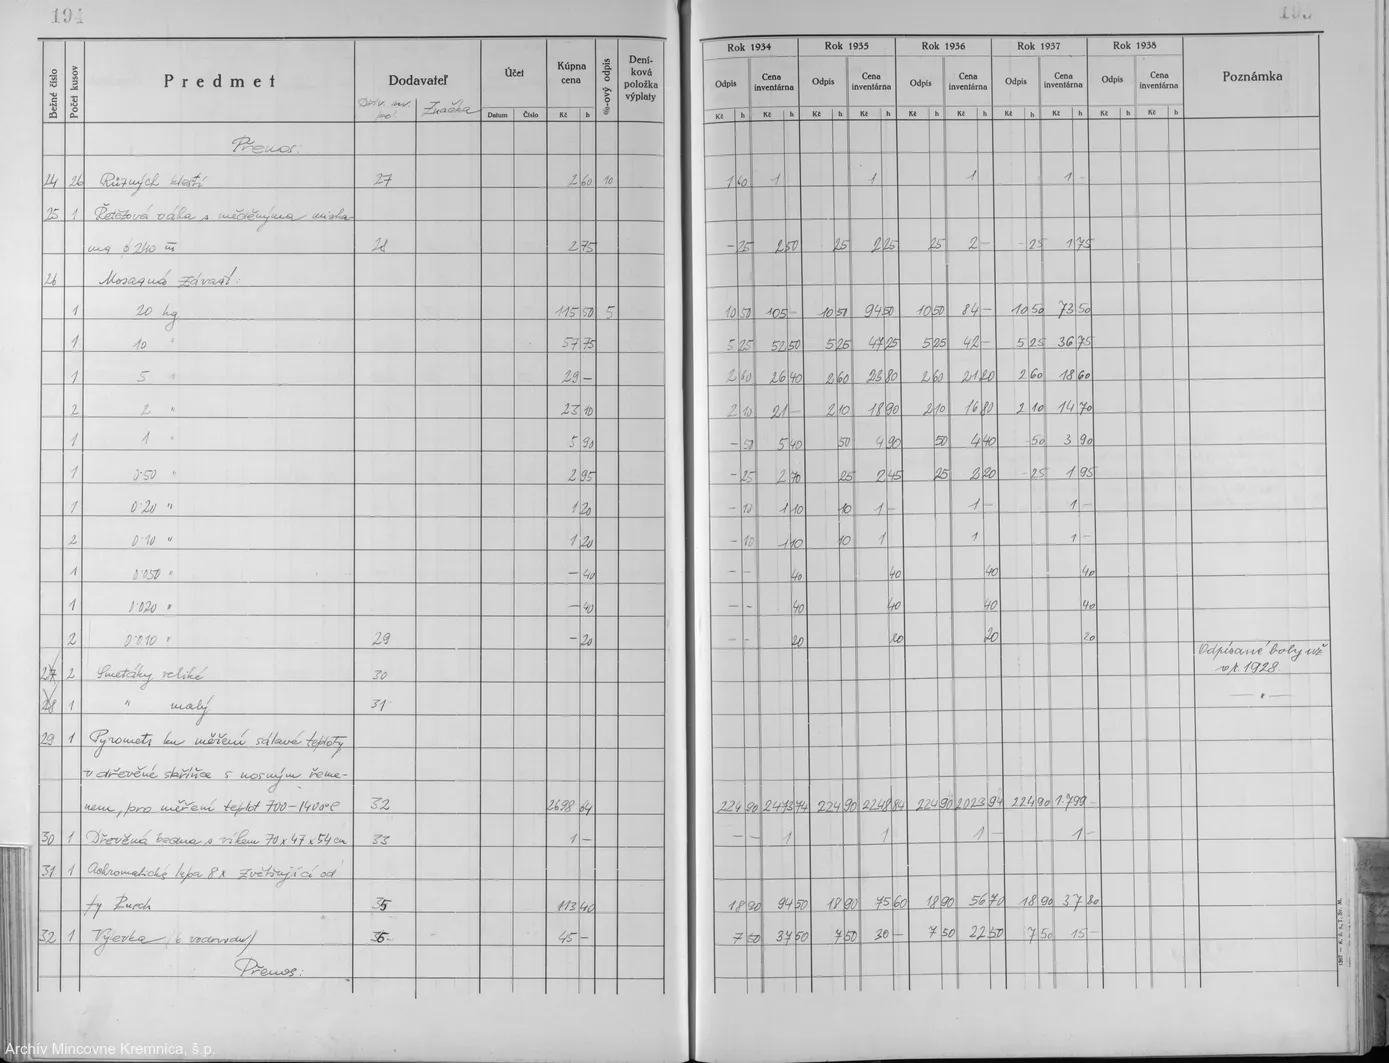 194
195
Bežné číslo Počet kusov Predmet Dodavateľ Účet Kúpna cena %-ový odpis Deníková položka výplaty Rok 1934 Rok 1935 Rok 1936 Rok 1937 Rok 1938 Poznámka
Značka Datum Číslo Kč h Odpis Cena inventárna Odpis Cena inventárna Odpis Cena inventárna Odpis Cena inventárna Odpis Cena inventárna
Kč h Kč h Kč h Kč h Kč h Kč h Kč h Kč h Kč h Kč h
Přenos:
24 26 Různých kleští 27 2 60 10 1 60 1 1 1 1 –
25 1 Řetězová váha s měděnýma miska-
ma φ 240 m/m 28 2 75 – 25 2 50 25 2 25 25 2 – – 25 1 75
26 Mosazná závaží:
1 20 kg 115 50 5 10 50 105 – 10 50 94 50 10 50 84 – 10 50 73 50
1 10 " 57 75 5 25 52 50 5 25 47 25 5 25 42 – 5 25 36 75
1 5 " 29 – 2 60 26 40 2 60 23 80 2 60 21 20 2 60 18 60
2 2 " 23 10 2 10 21 – 2 10 18 90 2 10 16 80 2 10 14 70
1 1 " 5 90 – 50 5 40 50 4 90 50 4 40 – 50 3 90
1 0·50 " 2 95 – 25 2 70 25 2 45 25 2 20 – 25 1 95
1 0·20 " 1 20 – 10 1 10 10 1 – 1 – 1 –
2 0·10 " 1 20 – 10 1 10 10 1 1 1 –
1 0·050 " – 40 – – 40 40 40 40
1 0·020 " – 40 – – 40 40 40 40
2 0·010 " 29 – 20 – – 20 20 20 20
27 2 Smetáky veliké 30 Odpísané boly už
v r. 1928.
28 1 " malý 31 — " —
29 1 Pyrometr ku měření sálavé teploty
v dřevěné skříňce s nosným řeme-
nem, pro měření teplot 700–1400°C 32 2698 64 224 90 2473 74 224 90 2248 84 224 90 2023 94 224 90 1.799 –
30 1 Dřevěná bedna s víkem 70 x 47 x 54 cm 33 1 – – – 1 1 1 – 1 –
31 1 Achromatická lupa 8 x zvětšující od
fy 35 113 40 18 90 94 50 18 90 75 60 18 90 56 70 18 90 37 80
32 1 Výlevka (k vodovodu) 36 45 – 7 50 37 50 7 50 30 – 7 50 22 50 7 50 15 –
Přenos:
Archív Mincovne Kremnica, š.p.